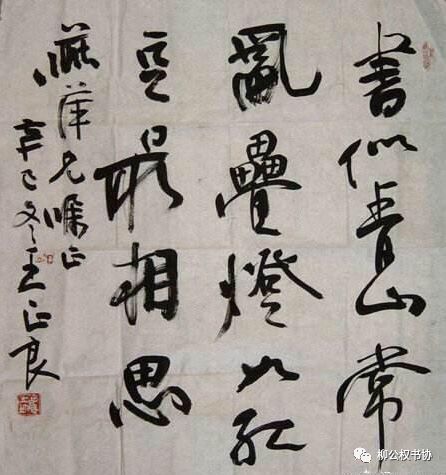 書似青山常
亂疊燈如红
豆最相思
萍兄嘱正
辛巳冬王正良
柳公权书协